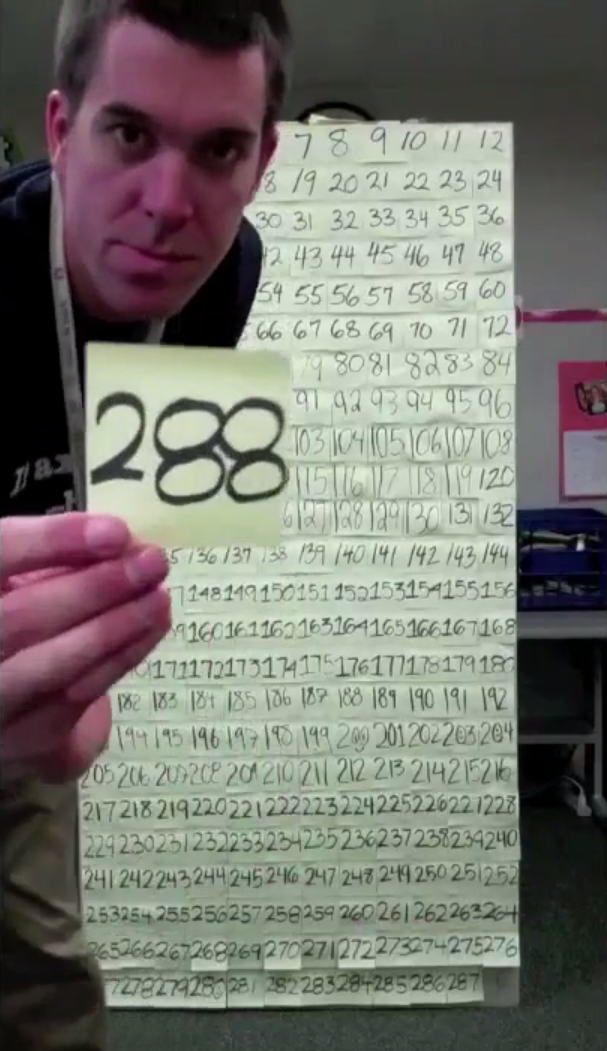 7 8 9 10 11 12
8 19 20 21 22 23 24
30 31 32 33 34 35 36
42 43 44 45 46 47 48
54 55 56 57 58 59 60
66 67 68 69 70 71 72
79 80 81 82 83 84
91 92 93 94 95 96
103 104 105 106 107 108
115 116 117 118 119 120
6 127 128 129 130 131 132
288
35 136 137 138 139 140 141 142 143 144
7 148 149 150 151 152 153 154 155 156
59 160 161 162 163 164 165 166 167 168
171 172 173 174 175 176 177 178 179 180
182 183 184 185 186 187 188 189 190 191 192
194 195 196 197 198 199 200 201 202 203 204
205 206 207 208 209 210 211 212 213 214 215 216
217 218 219 220 221 222 223 224 225 226 227 228
229 230 231 232 233 234 235 236 237 238 239 240
241 242 243 244 245 246 247 248 249 250 251 252
253 254 255 256 257 258 259 260 261 262 263 264
265 266 267 268 269 270 271 272 273 274 275 276
7 278 279 280 281 282 283 284 285 286 287